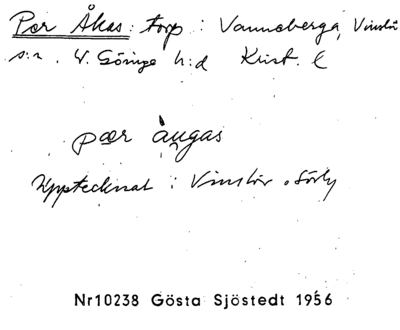 Per Åkas: torp: Vanneberga, Vinslöv
s:n. V. Göinge h:d Krist. l
pær ångas
Upptecknat i Vinslöv o. Sörby
Nr10238 Gösta Sjöstedt 1956